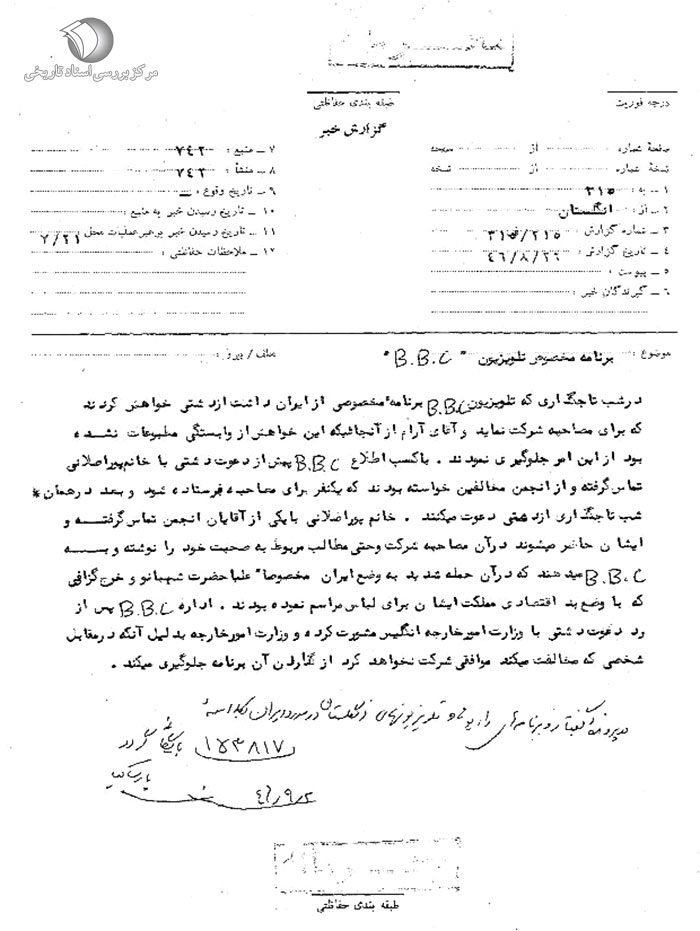 مرکز بررسی اسناد تاریخی
درجه فوریت
طبقه بندی حفاظتی
گزارش خبر
صفحهٔ شماره از صفحه
نسخهٔ شماره از نسخه
۱ ــ به : ۳۱۵
۲ ــ از : انگلستان
۳ ــ شماره گزارش : ۳۱۵/۲۱۵
۴ ــ تاریخ گزارش : ۴۶/۸/۲۹
۵ ــ پیوست :
۶ ــ گیرندگان خبر :
۷ ــ منبع : ۷۴۲
۸ ــ منشأ : ۷۴۲
۹ ــ تاریخ وقوع :
۱۰ ــ تاریخ رسیدن خبر به منبع :
۱۱ ــ تاریخ رسیدن خبر برهبر عملیات محل ۷/۲۱
۱۲ ــ ملاحظات حفاظتی :
موضوع : برنامه مخصوص تلویزیون " B.B.C " عطف / پیرو :
در شب تاجگذاری که تلویزیون B.B.C برنامهٔ مخصوصی از ایران داشت از دشتی خواهش کردند
که برای مصاحبه شرکت نماید و آقای آرام از آنجائیکه این خواهش از وابستگی مطبوعات نشده
بود از این امر جلوگیری نمودند . باکسب اطلاع B.B.C پیش از دعوت دشتی با خانم پوراصلانی
تماس گرفته و از انجمن مخالفین خواسته بودند که یکنفر برای مصاحبه فرستاده شود و بعد در همان *
شب تاجگذاری از دشتی دعوت میکنند . خانم پوراصلانی بایکی از آقایان انجمن تماس گرفته و
ایشان حاضر میشوند در آن مصاحبه شرکت وحتی مطالب مربوط به صحبت خود را نوشته و به
B.B.C میدهند که در آن حمله شدید به وضع ایران مخصوصا" علیاحضرت شهبانو و خرج گزافی
که با وضع بد اقتصادی مملکت ایشان برای لباس مراسم نموده بودند . اداره B.B.C پس از
رد دعوت دشتی با وزارت امورخارجه انگلیس مشورت کرده و وزارت امورخارجه بدلیل آنکه در مقابل
شخصی که مخالفت میکند موافقی شرکت نخواهد کرد از گذاردن آن برنامه جلوگیری میکند .
در پرونده گفتار و برنامه‌های رادیو و تلویزیونهای انگلستان در مورد ایران بکلاسه
۱۵۳۸۱۷ بایگانی گردد
۴۶/۹/۲
طبقه بندی حفاظتی